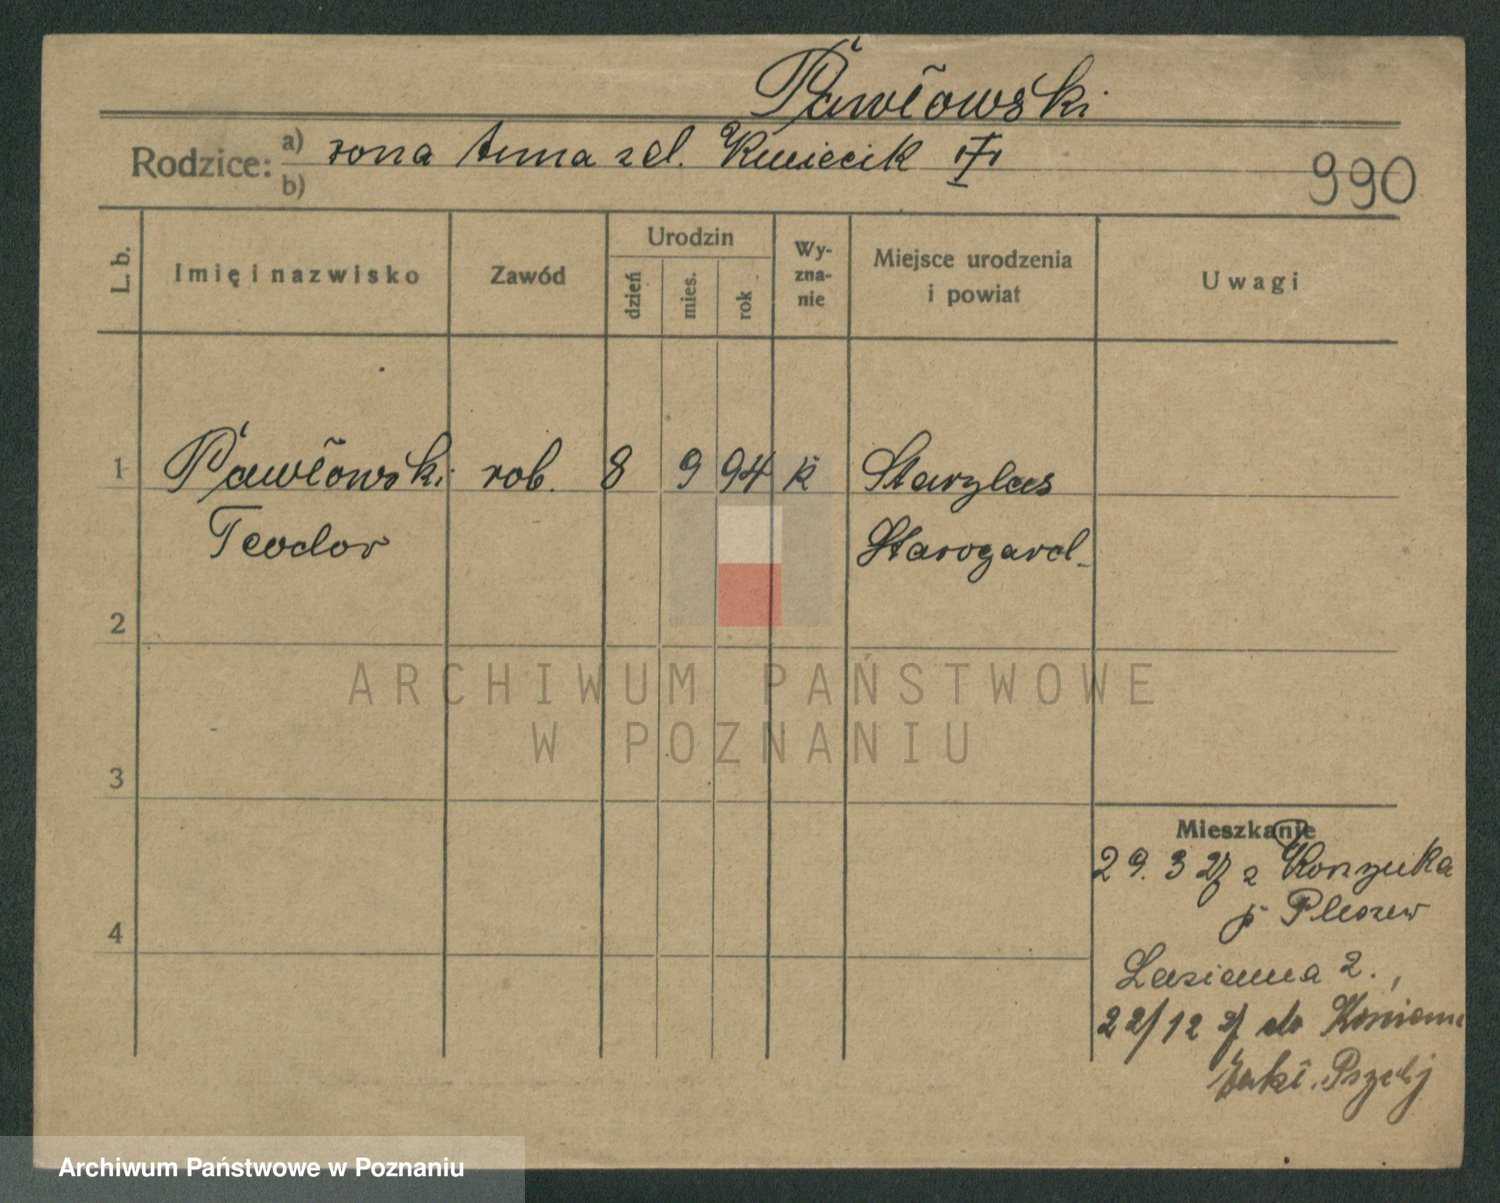 Pawłowski
Rodzice: a) żona Anna zd. Kwiecik
b)
990
L. b.
Imię i nazwisko
Zawód
Urodzin
dzień
mies.
rok
Wy-
zna-
nie
Miejsce urodzenia
i powiat
Uwagi
1 Pawłowski rob. 8 9 94 k Starylas
Teodor Starogard
2
ARCHIWUM PAŃSTWOWE
W POZNANIU
3
Mieszkanie
29. 3 27 z
p Pleszew
4
Łazienna 2.
22/12 27 do
Archiwum Państwowe w Poznaniu